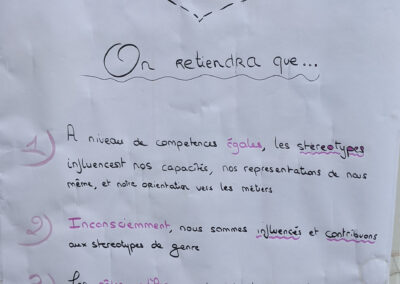 On retiendra que...
1) A niveau de competences égales, les stereotypes
influencent nos capacités, nos représentations de nous
même, et notre orientation vers les métiers
2) Inconsciemment, nous sommes influencés et contribuons
aux stereotypes de genre
3) Les